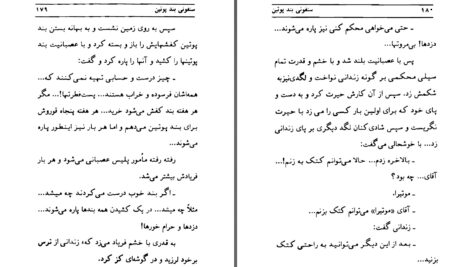 سنفونی بند پوتین ۱۷۹
سپس به روی زمین نشست و به بهانه بستن بند
پوتین کفشهایش را باز و بسته کرد و با عصبانیت بند
پوتینها را کشید و آنها را پاره کرد و گفت:
ـ چیز درست و حسابی تهیه نمی‌کنند که...
همه‌شان فرسوده و خراب هستند... پست‌فطرتها!... مگر
هر هفته بند کفش می‌شود خرید... هر هفته پنجاه قوروش
برای بند پوتین می‌دهم و اما هر بار نیز اینطور پاره
می‌شوند...
رفته رفته مأمور پلیس عصبانی می‌شود و هر بار
فریادش بیشتر می‌شد.
ـ اگر بند خوب درست می‌کردند چه میشد...
مثلاً چه میشد... در یک کشیدن همه بندها پاره می‌شوند...
دزدها و حرام خورها!
به قدری با خشم فریاد می‌زد که زندانی از ترس
برخود لرزید و در گوشه‌ای کز کرد.
۱۸۰ سنفونی بند پوتین
ـ حتی می‌خواهی محکم کنی نیز پاره می‌شوند...
دزدها! بی‌مروتها...
پس با عصبانیت بلند شد و با تمام قدرت
سیلی محکمی بر گونه زندانی نواخت و لگدی‌نیز‌به
شکمش زد. سپس از آن کارش حیرت کرد و به دست و
پای خود که برای اولین بار کسی را می‌زد با حیرت
نگریست و سپس شادی‌کنان لگد دیگری بر پای زندانی
زد... با خوشحالی می‌گفت:
ـ بالاخره زدم... حالا می‌توانم کتک به زنم!...
آقای... چه بود؟
ـ موتیرا.
ـ آقای «موتیرا» می‌توانم کتک بزنم...
زندانی گفت:
ـ بعد از این دیگر می‌توانید به راحتی کتک
بزنید...